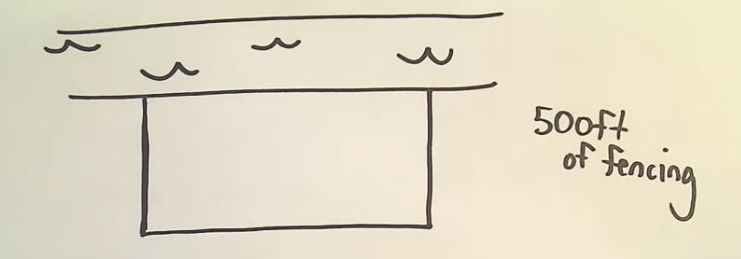 500ft
of fencing